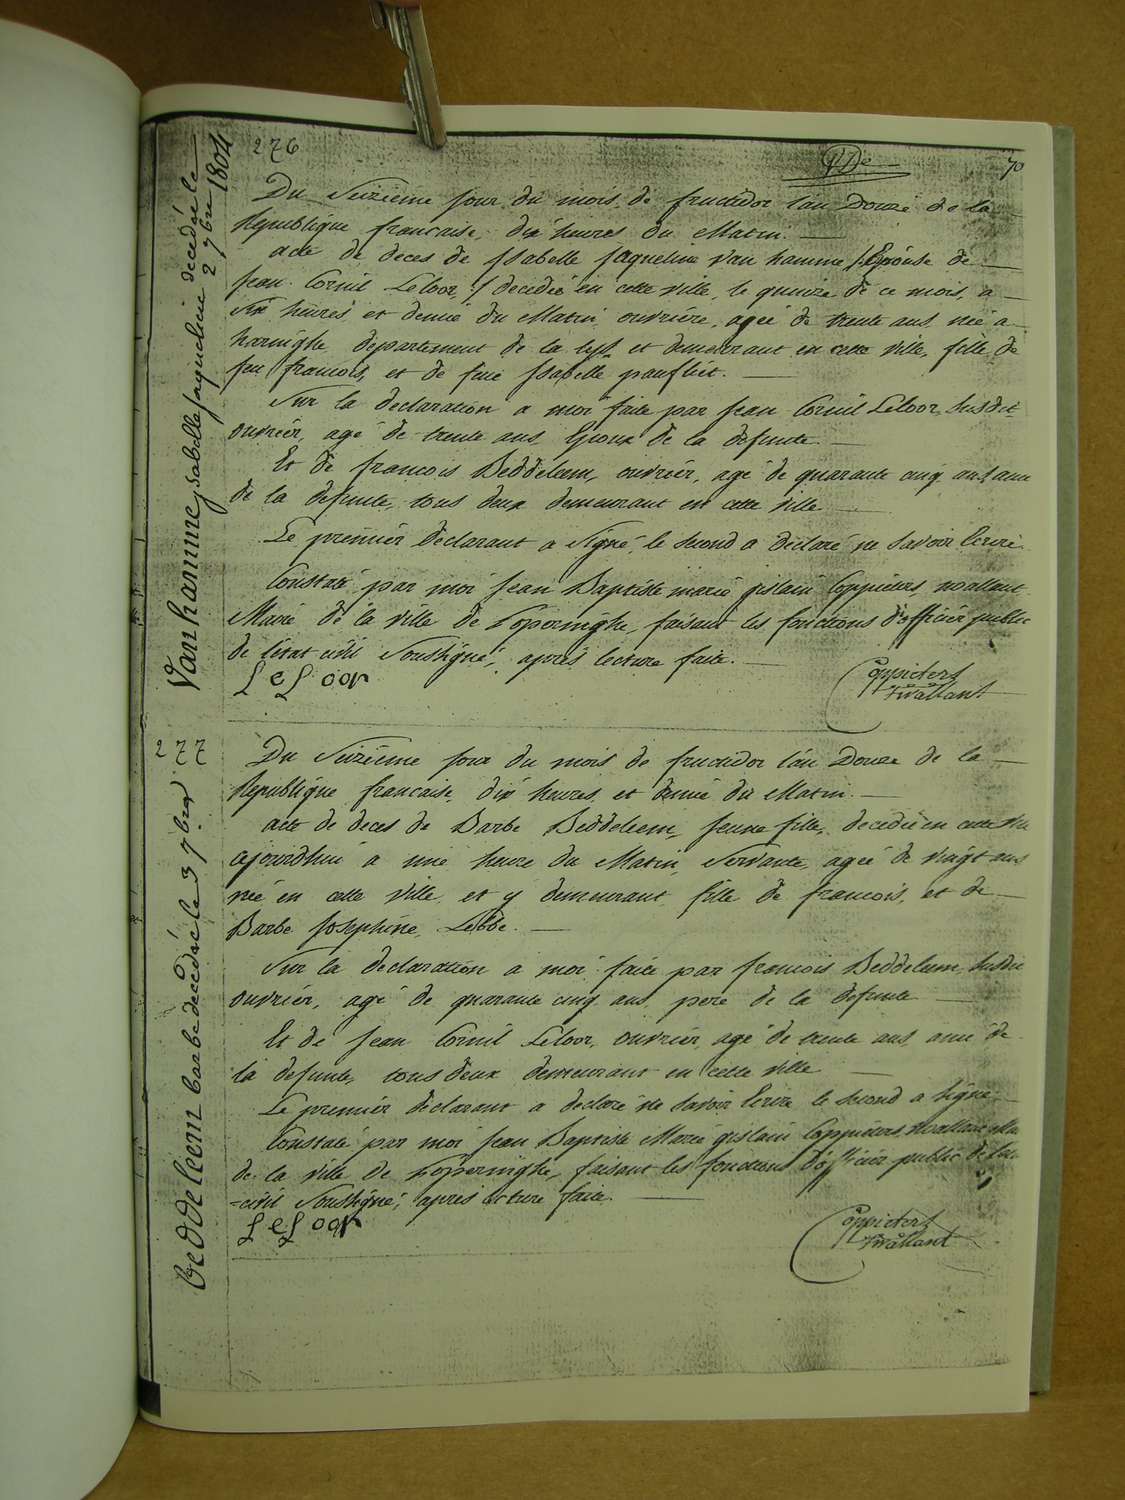 276
70
Van hamme isabelle jaqueline decedée le 2 7bre 1804
Du Seizieme jour du mois de fructidor l'an Douze de la
Republique francaise, dix heures du Matin.
acte de deces de Isabelle Jaqueline van hamme / Epouse de
Jean Cornil Leloor, / decedée en cette ville, le quinze de ce mois, a
six heures et demie du Matin, ouvriere, agée de trente ans, née a
haringhe, departement de la lys, et demeurant en cette ville, fille de
feu francois, et de feue Isabelle
Sur la declaration a moi faite par Jean Cornil Leloor susdit
ouvrier, agé de trente ans, Epoux de la defunte.
Et de francois Beddeleem, ouvrier, agé de quarante cinq ans, ami
de la defunte, tous deux demeurant en cette ville
Le premier declarant a signé, le second a declaré ne savoir Ecrire
Constaté par moi Jean Baptiste marie gislain Coppieters wallant
Maire de la ville de Poperinghe, faisant les fonctions d'officier public
de l'etat civil Soussigné, après lecture faite.
LeLoor
Coppieters
Twallant
277
beddeleem barbe decedée le 3 7bre
Du Seizieme jour du mois de fructidor l'an Douze de la
Republique francaise, dix heures et demie du Matin.
acte de deces de Barbe Beddeleem, jeune fille, decedée en cette
cejourdhui a une heure du Matin, Servante, agée de vingt ans
née en cette ville, et y demeurant, fille de francois, et de
Barbe Josephine Lebbe.
Sur la declaration a moi faite par francois Beddeleem, susdit
ouvrier, agé de quarante cinq ans, pere de la defunte
Et de Jean Cornil Leloor, ouvrier, agé de trente ans, ami de
la defunte, tous deux demeurant en cette ville
Le premier declarant a declaré ne savoir Ecrire le second a signé
Constaté par moi Jean Baptiste Marie gislain Coppieters wallant
de la ville de Poperinghe, faisant les fonctions d'officier public de
=civil Soussigné, après lecture faite.
LeLoor
Coppieters
Twallant